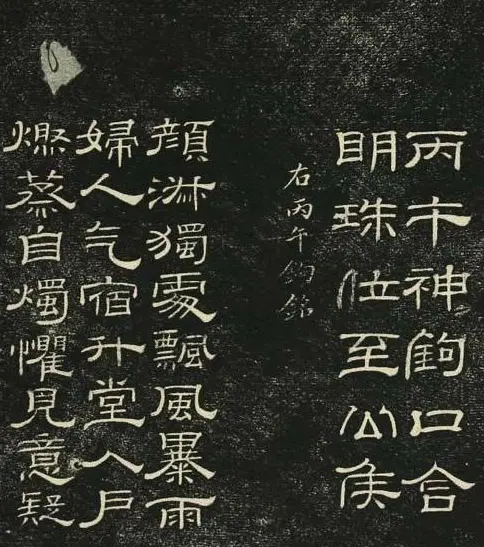 丙午神鉤口含
明珠位至公侯
右丙午鉤銘
顏淑獨處飄風暴雨
婦人气宿升堂入戶
燃蒸自燭懼見意疑